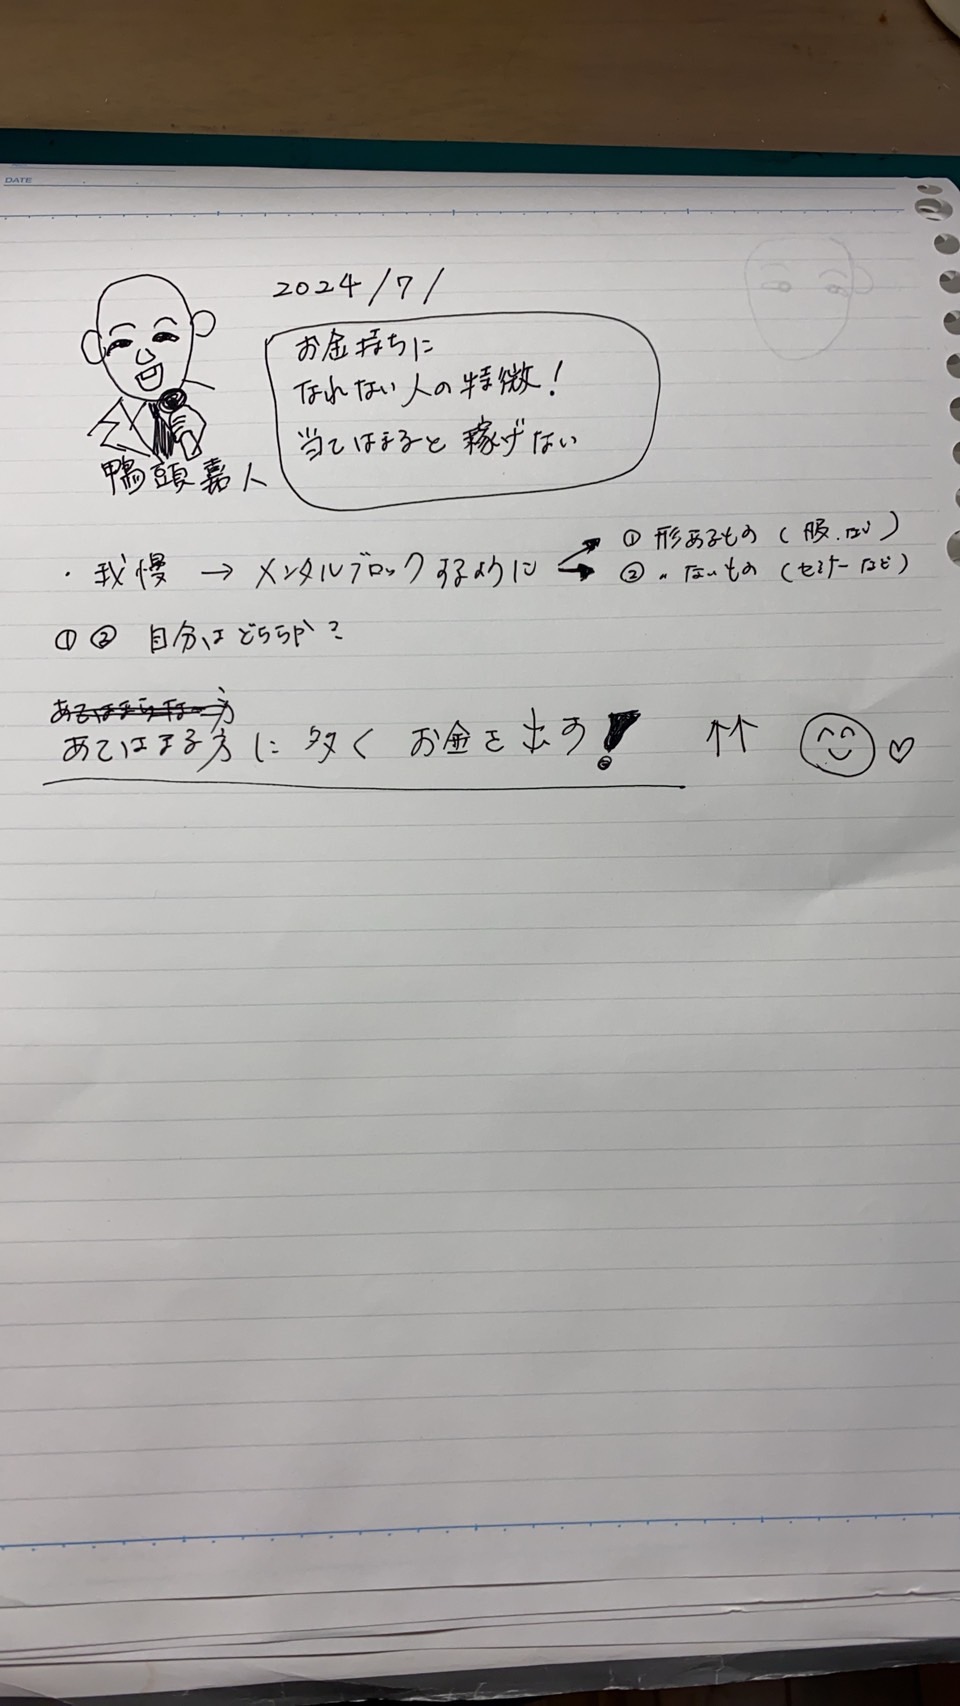 DATE
2024/7/
お金持ちに
なれない人の特徴!
当てはまると稼げない
鴨頭嘉人
・我慢 → メンタルブロックするように
① 形あるもの(服.など)
② 〃ないもの(セミナーなど)
①② 自分はどちらか?
あてはまらない方
あてはまる方に多くお金を出す! ↑↑ ♡